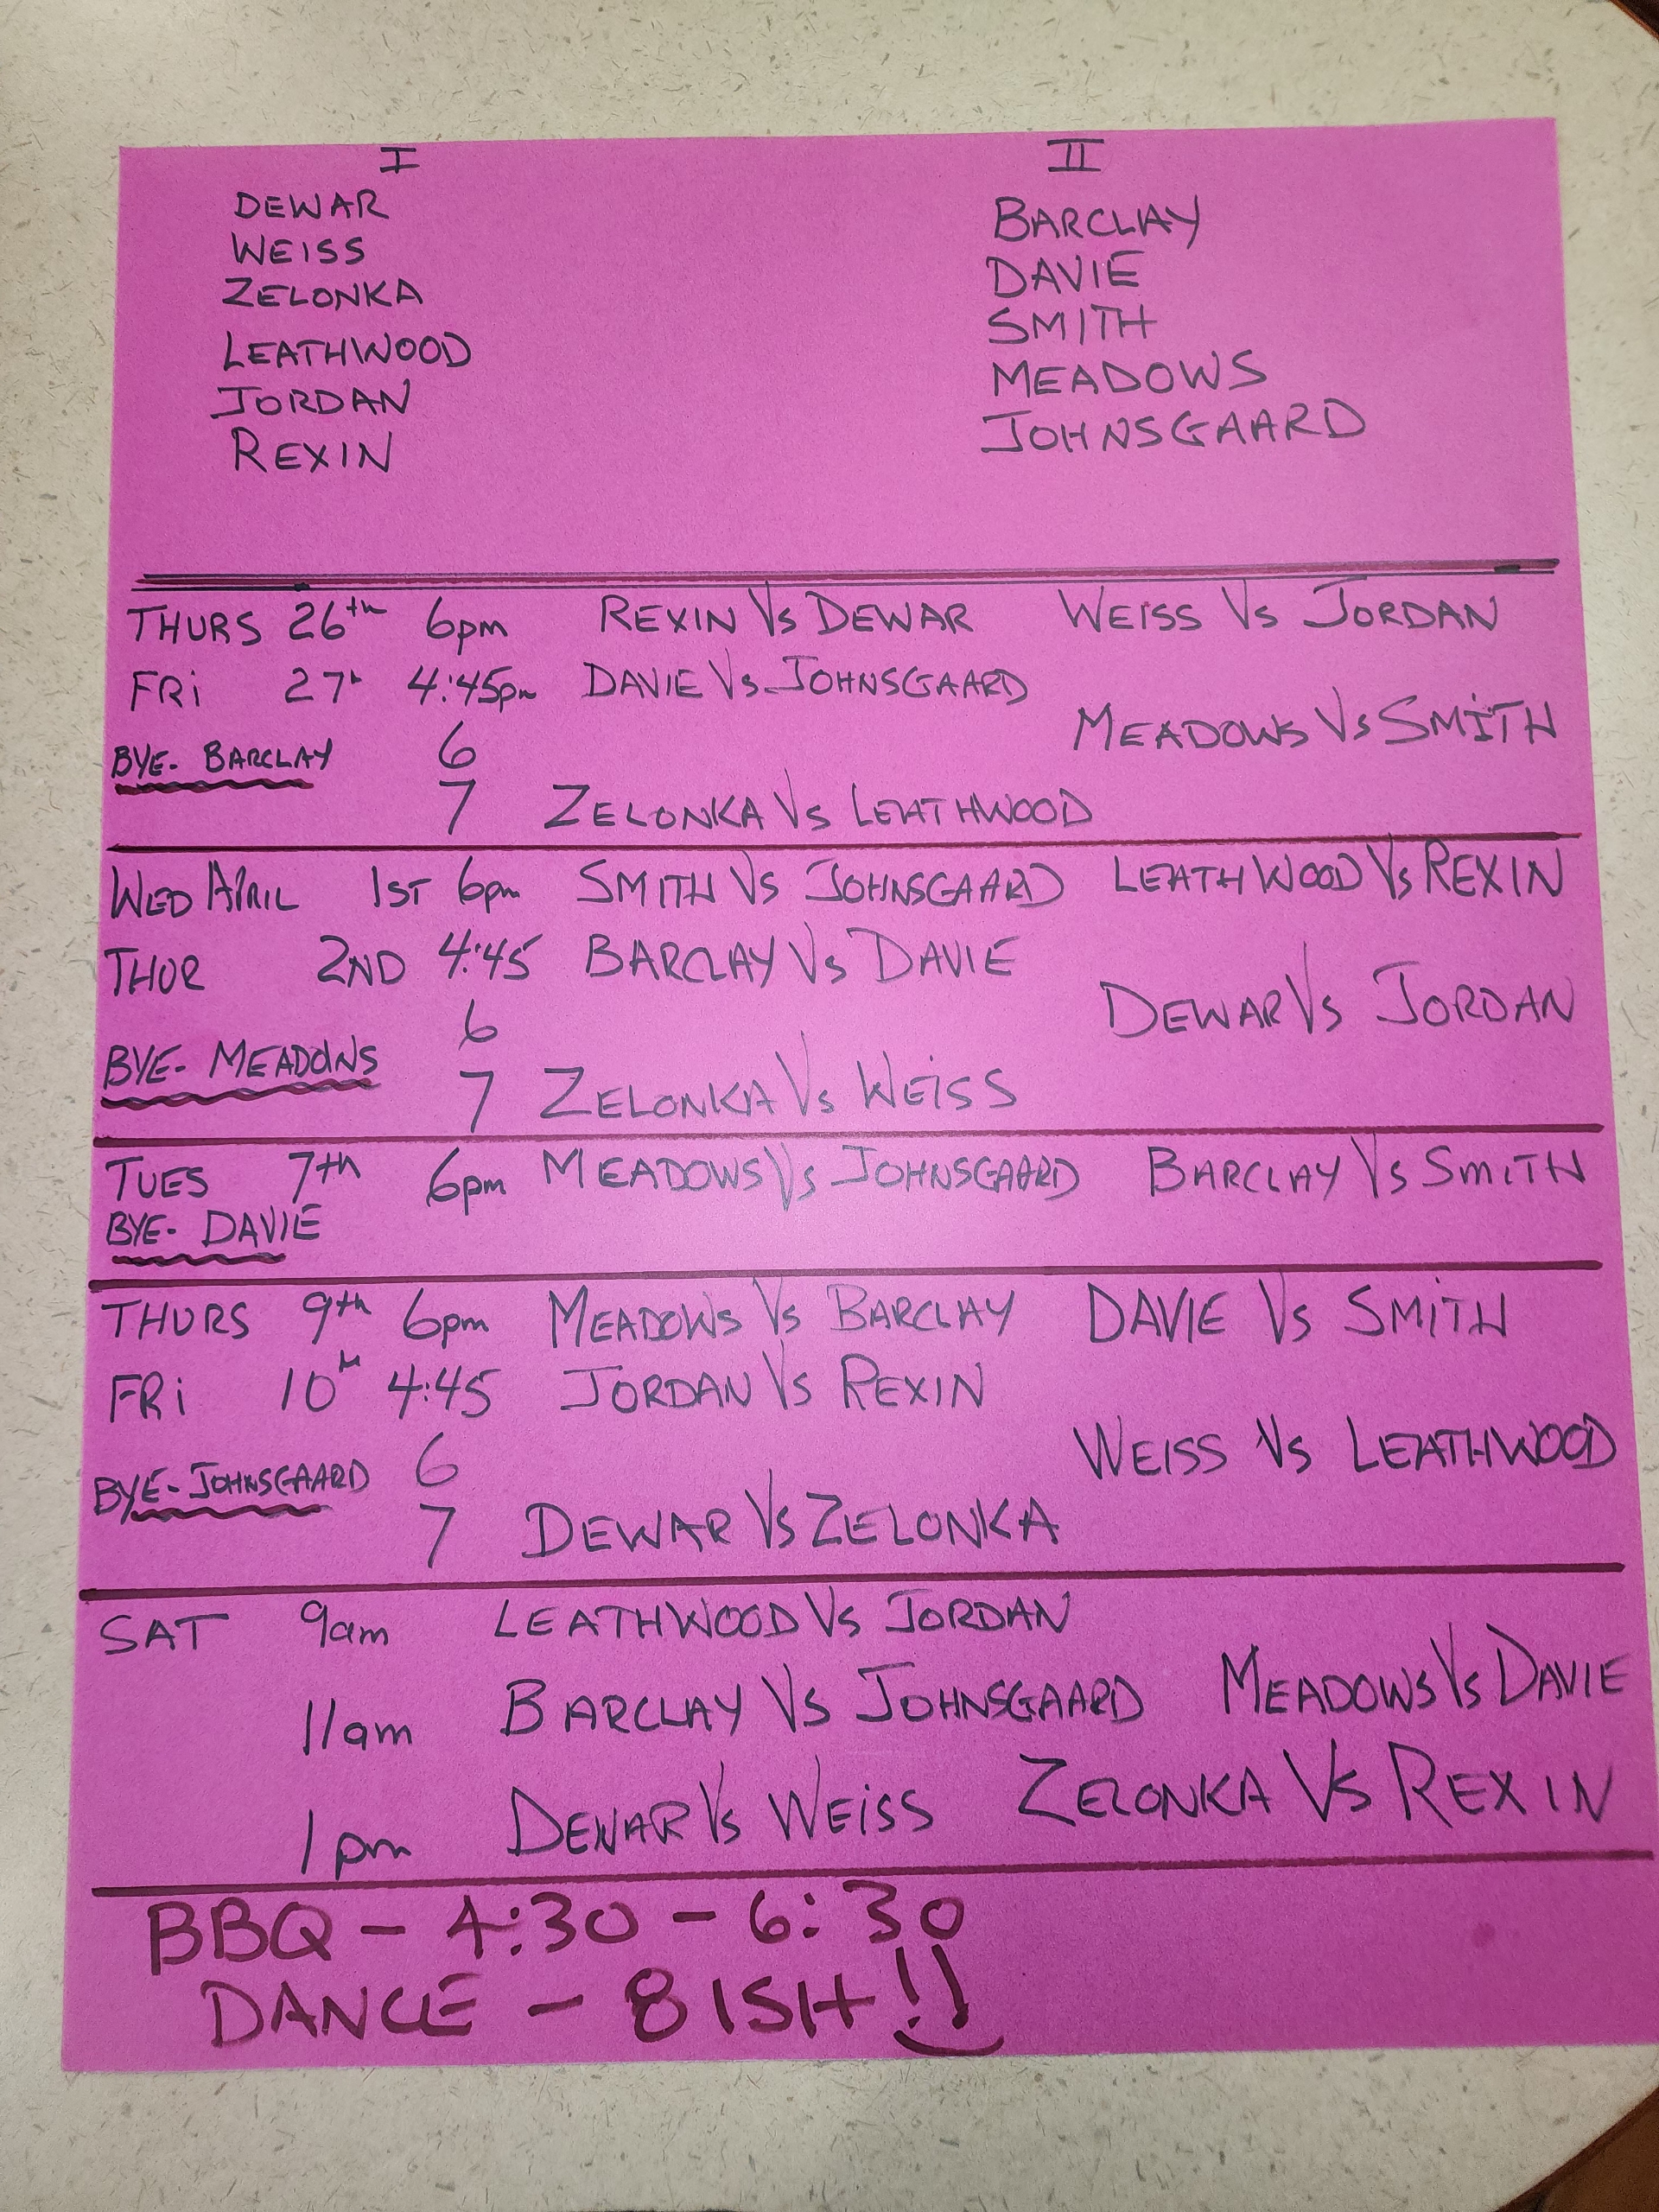 I
DEWAR
WEISS
ZELONKA
LEATHWOOD
JORDAN
REXIN
II
BARCLAY
DAVIE
SMITH
MEADOWS
JOHNSGAARD
THURS 26th 6pm REXIN Vs DEWAR WEISS Vs JORDAN
FRi 27h 4:45pm DAVIE Vs JOHNSGAARD
BYE- BARCLAY 6 MEADOWS Vs SMITH
7 ZELONKA Vs LEATHWOOD
WED APRIL 1ST 6pm SMITH VS JOHNSGAARD LEATHWOOD Vs REXIN
THUR 2ND 4:45 BARCLAY Vs DAVIE
6 DEWAR Vs JORDAN
BYE- MEADOWS
7 ZELONKA Vs WEiSS
TUES 7th 6pm MEADOWS Vs JOHNSGAARD BARCLAY Vs SmiTH
BYE- DAVIE
THURS 9th 6pm MEADOWS Vs BARCLAY DAVIE Vs SMiTH
FRi 10th 4:45 JORDAN Vs REXIN
BYE- JOHNSGAARD 6 WEISS Vs LEATHWOOD
7 DEWAR Vs ZELONKA
SAT 9am LEATHWOOD Vs JORDAN
11am BARCLAY Vs JOHNSGAARD MEADOWS Vs DAVIE
1pm DEWAR Vs WEiSS ZELONKA Vs REXIN
BBQ - 4:30 - 6:30
DANCE - 8 ISH!!